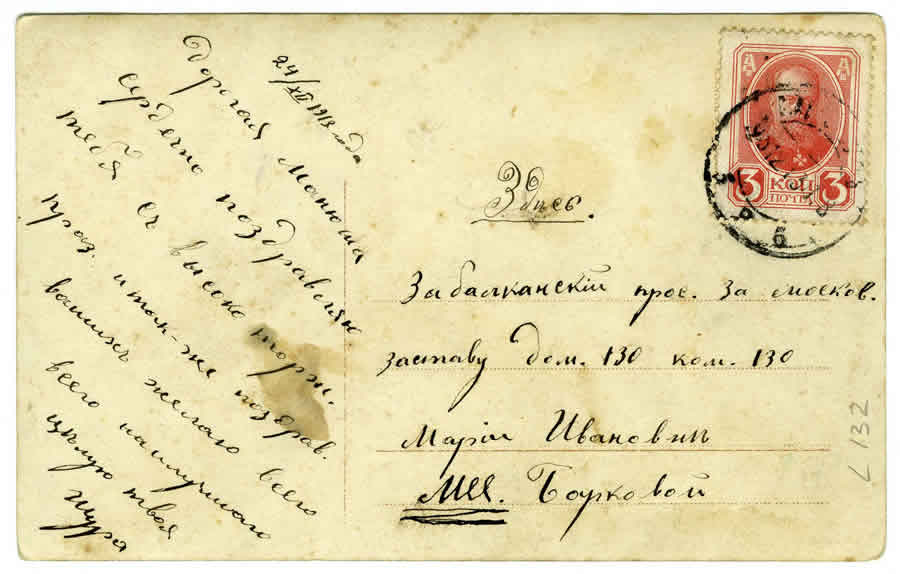 24/XII 1913 года
Дорогая Манюша
сердечно поздравляю
тебя съ высоко торж.
праз. и так-же поздрав.
вашихъ желаю всего
всего наилучшаго
цѣлую твоя
Шура
Здѣсь.
Забалканскій прос. За москов.
заставу дом. 130 ком. 130
Маріи Ивановнѣ
Мlle. Борковой
3 КОП 3
ПОЧТ
L 132